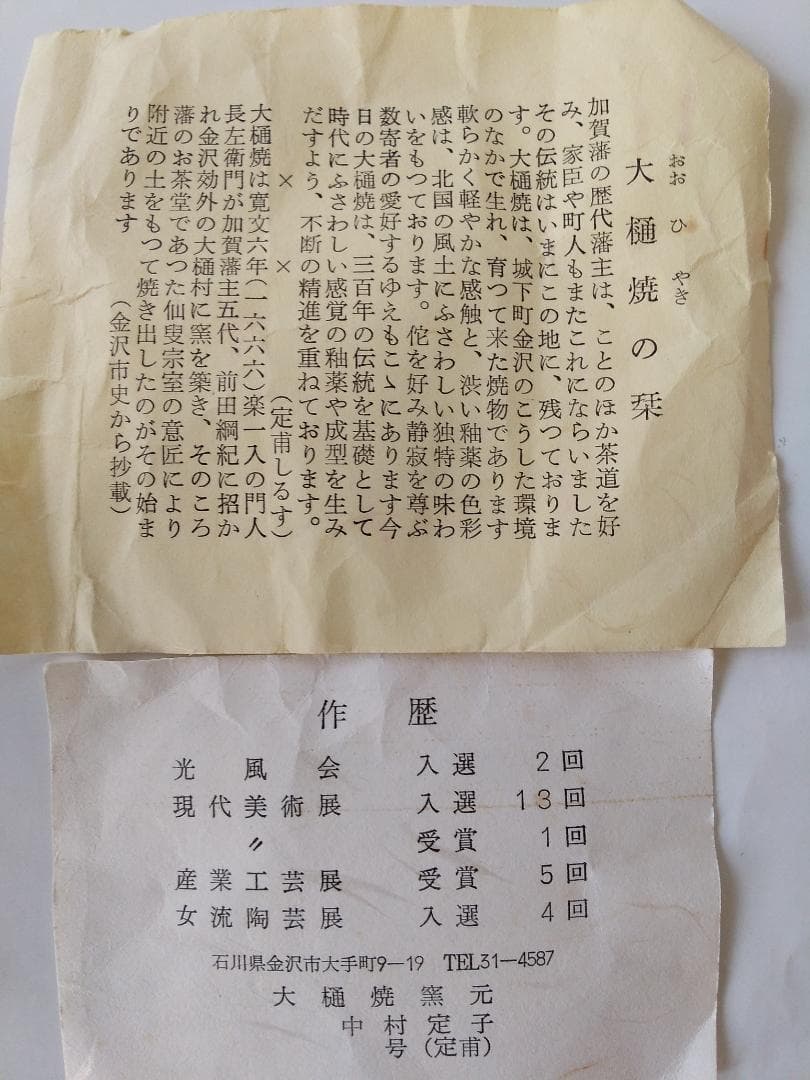 おお ひ やき
大樋焼の栞
加賀藩の歴代藩主は、ことのほか茶道を好
み、家臣や町人もまたこれにならいました
その伝統はいまにこの地に、残つておりま
す。大樋焼は、城下町金沢のこうした環境
のなかで生れ、育つて来た焼物であります
軟らかく軽やかな感触と、渋い釉薬の色彩
感は、北国の風土にふさわしい独特の味わ
いをもつております。侘を好み静寂を尊ぶ
数寄者の愛好するゆえもこゝにあります今
日の大樋焼は、三百年の伝統を基礎として
時代にふさわしい感覚の釉薬や成型を生み
だすよう、不断の精進を重ねております。
× × (定甫しるす)
大樋焼は寛文六年(一六六六)楽一入の門人
長左衛門が加賀藩主五代、前田綱紀に招か
れ金沢効外の大樋村に窯を築き、そのころ
藩のお茶堂であつた仙叟宗室の意匠により
附近の土をもつて焼き出したのがその始ま
りであります
(金沢市史から抄載)
作歴
光風会 入選 2回
現代美術展 入選 13回
〃 受賞 1回
産業工芸展 受賞 5回
女流陶芸展 入選 4回
石川県金沢市大手町9−19 TEL31−4587
大樋焼窯元
中村定子
号(定甫)